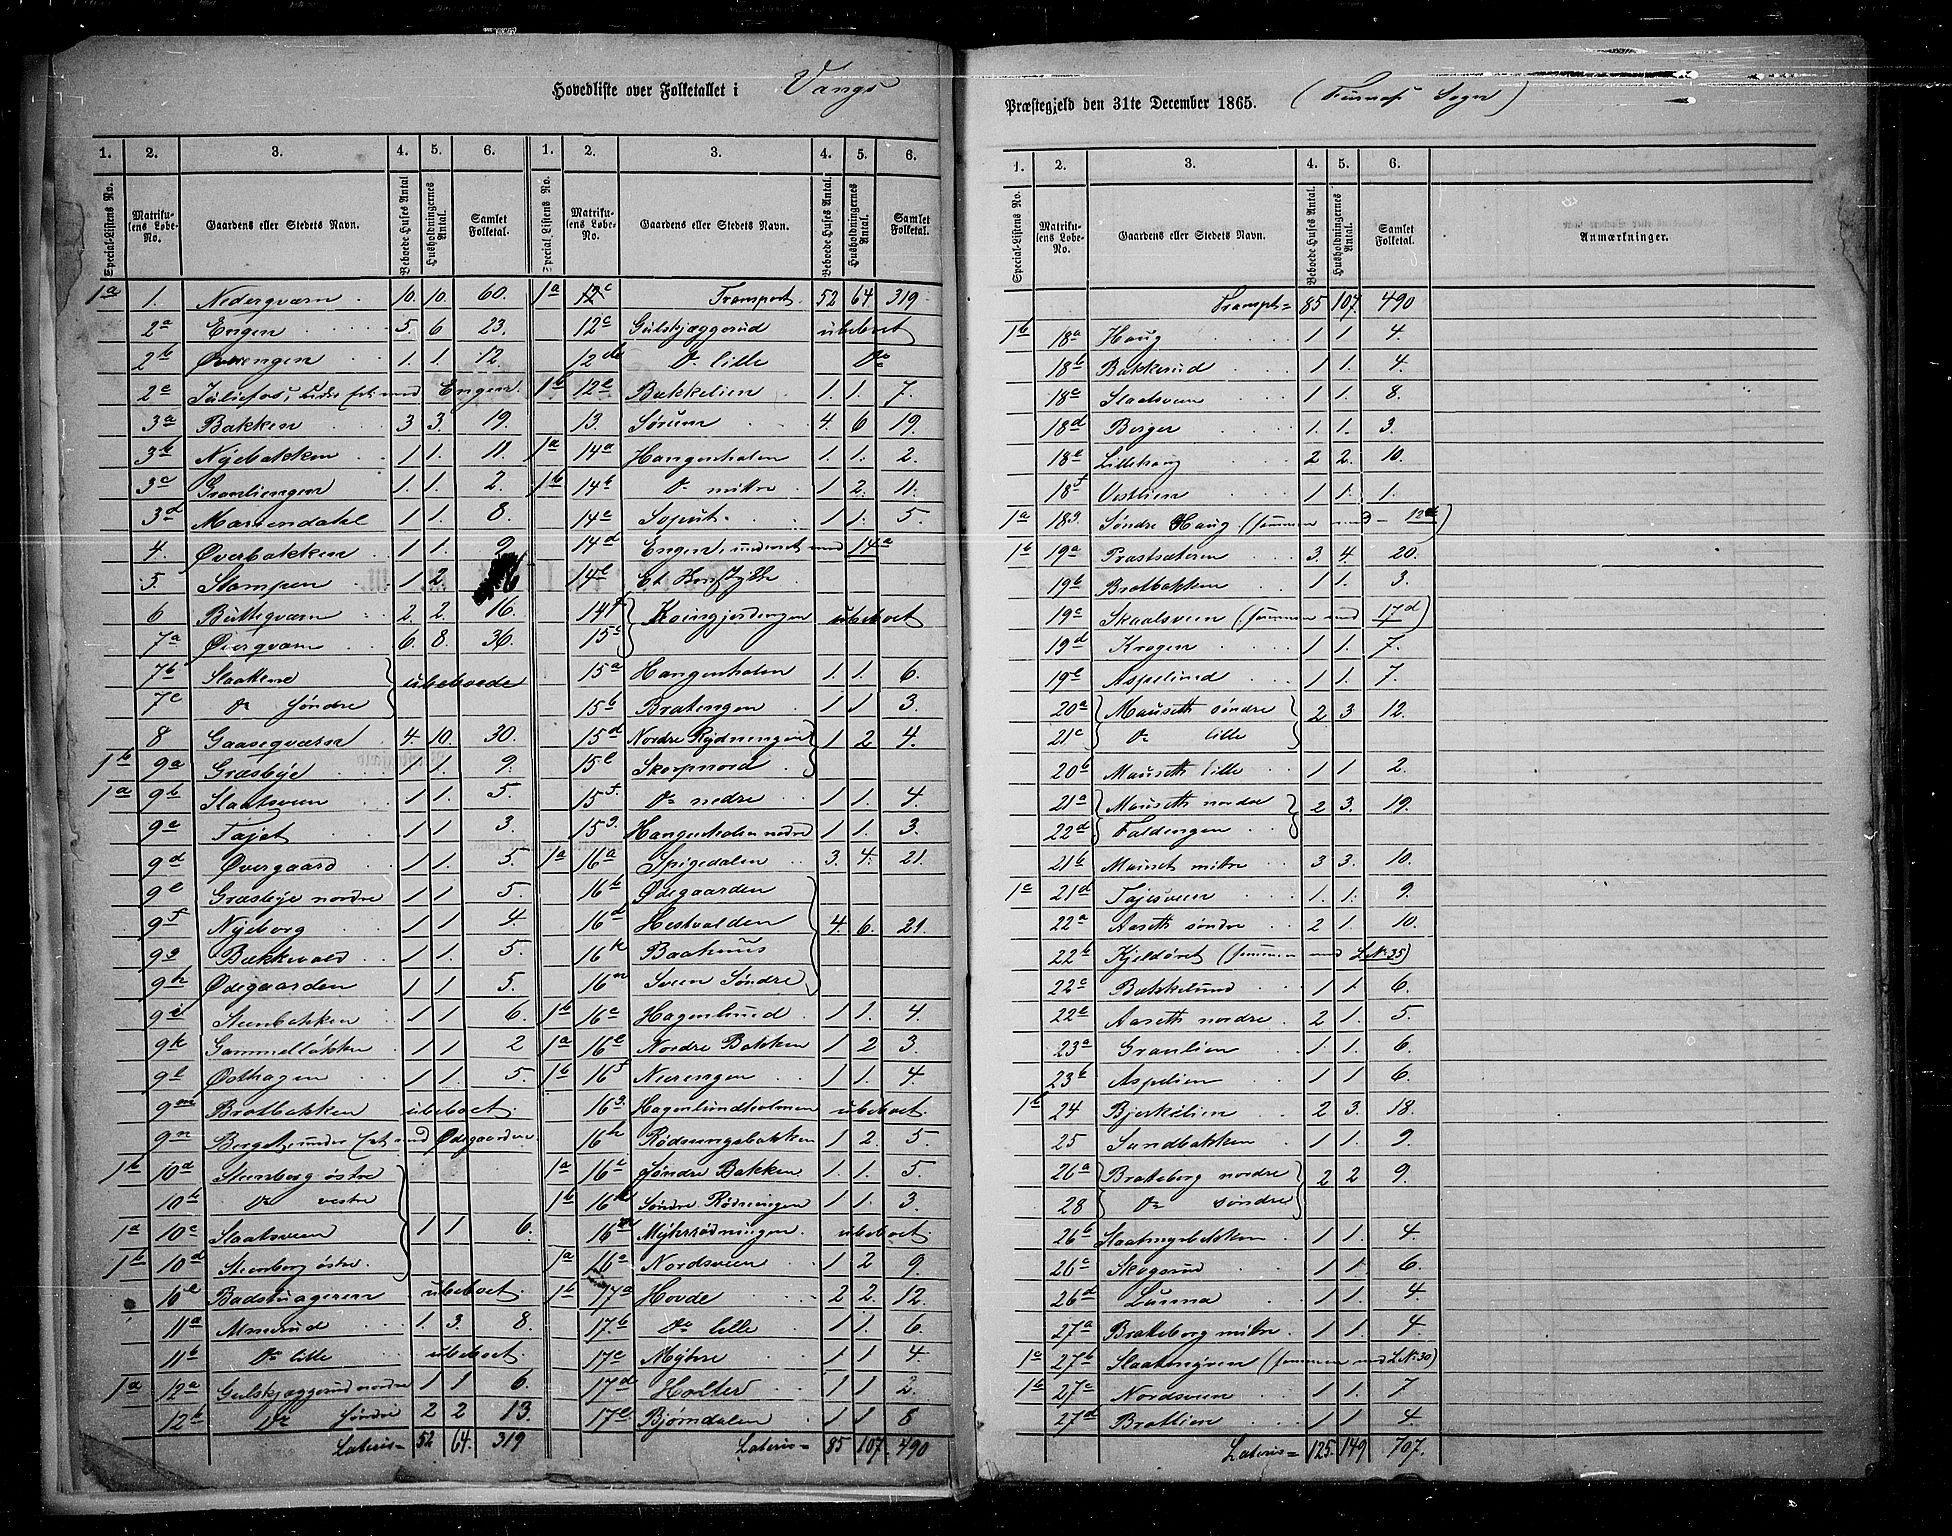 Hovedliste over Folketallet i Vangs
1. 2. 3. 4. 5. 6. 1. 2. 3. 4. 5. 6.
Special-Listens No. Matrikulens Løbe-No. Gaardens eller Stedets Navn. Beboede Huses Antal Husholdningernes Antal. Samlet Folketal. Special-Listens No. Matrikulens Løbe-No. Gaardens eller Stedets Navn. Beboede Huses Antal. Husholdningernes Antal. Samlet Folketal.
1a 1. Nedergværn 10. 10. 60. 1a Transport. 52 64 319
2a Engen 5. 6 23. 12c Gulskjæggerud ubeboet
2b Øvrengen 1. 1 12 Do lille Do
Engen. 1b 12e Bækkelien 1. 1. 7.
3a Bakken 3 3. 19. 13. Sørum 4. 6 19.
3b Nyebakken 1 1. 11. 1a 14a Hangenholen 1. 1. 2.
3c Granliengen 1. 1. 2. 1b 14b Do mitre 1. 2. 11.
3d Mariendahl 1 1. 8. 14c 1 1. 5.
4. Øverbakken 1 1. 2. 14d Engen, underet med 14a
5. Stampen 1 2. 6 14e
6 Butteqværn 2. 2. 16. 14f ubeboet
7a Øverqværn 6. 8. 36. 15c
7b Slaattene ubeboede 15a Hangenholen 1. 1. 6.
7c Do søndre 15b Bratengen 1 1 3.
8 Gaaseqværn 4. 10. 30. 15d Nordre Rydningen 1 2 4.
1b 9a Græsbye 1 1. 9. 15e Skorpnord
1a 9b Slaatsveen 1 1. 5. 15f Do nedre 1 1. 4.
9c Tajet 1 1 3. 15g Hangenholen nedre 1 1. 3.
9d Overgaard 1 1. 5. 1a 16a Spigedalen 3. 4. 21.
9e Græsbye nordre 1 1 5. 16b Ødegaarden
9f Nyeborg 1 1 4. 16d Hestvolden 4. 6. 21.
9g Bækkevold 1 1. 5. Baathuus
9h Ødegaarden 1 1 5. Sveen Søndre
9i Steenbakken 1 1 6. 1b 16c Hagenlund 1 1. 4.
9k Gammelløkken 1 1 2 1a 16e Nordre Bakken 1 2 3.
9l Østhagen 1 1. 5. 1b 16f Nerengen 1 1. 4.
9m Bratbakken ubeboet. 16g Hagenlundholmen ubeboet.
9n Berget, under Ødegaarden 16h Rødningsbakken 1 2. 5.
1b 10a Steenberg østre 1a 16i Søndre Bakken 1. 1. 5.
10b Do vestre 1b 16k Søndre Rødningen 1 1. 3.
1a 10c Slaatsveen 1 1 6. Myhrrødningen ubeboet.
1b 10d Steenberg østre. 1a Nordsveen 1 2 9.
10e Badstuageren ubeboet. 1b 17a Hovde 2 2. 12.
11a Almerud 1. 3. 8. 17b Do lille 1 1. 6
11b Do lille ubeboet. 17c Myhre 1 1 4
1a 12a Gulskjæggerud nordre 1 1 6. 17d Holter 1 1 2.
12b Do søndre 2 2 13. 17e Bjørndalen 1 1 8
Lateris = 52 64. 319 Lateris = 85 107. 490
Præstegjeld den 31te December 1865. (Furnæs Sogn)
1. 2. 3. 4. 5. 6.
Special-Listens No. Matrikulens Løbe-No. Gaardens eller Stedets Navn. Beboede Huses Antal. Husholdningernes Antal. Samlet Folketal. Anmærkninger.
Transpt = 85 107. 490
1b 18a Haug 1 1 4.
18b Bakkerud 1 1. 4.
18c Slaatsveen 1 1. 8.
18d Berger 1. 1. 3.
18e Lillehaug 2 2. 10.
18f Vestlien 1 1. 1.
1a 18g Søndre Haug (sammen med 12)
1b 19a Præstsæteren 3. 4. 20.
19b Bratbakken 1 1. 3.
19c Skaalsveen (sammen med 17d)
19d Krogen 1 1. 7.
19e Aspelund 1 1. 7.
20a Mauseth søndre 2 3 12.
21c Do lille
20b Mauseth lille 1 1 2.
21a Mauseth nordre 2 3. 19.
22d Faldengen
21b Mauset mitre 3 3. 10.
1c 21d Tajesveen 1. 1. 9.
22a Aaseth søndre 2 1. 10.
22b Kjeldøret (sammen med LNr 35)
22c Bækkelund 1 1 6.
22e Aaseth nordre. 2 1. 5.
23a Granlien 1 1. 6.
23b Aspelien 1 1 6.
1b 24 Bjerkelien 2 3. 18.
25 Sandbakken 1 1. 9.
26a Brateberg nordre 2 2 9.
28 Do søndre
26b Slaatmyrbakken 1 1. 4.
26c Skogsrud 1 1. 6.
26d Lunna 1 1. 4.
27a Brateberg mitre. 1 1. 4.
1c 27b Slaatmyren (sammen med LNr 30)
1b 27c Nordsveen 1 1. 7
27d Bratlien 1 1. 4.
Lateris = 125. 149 707.